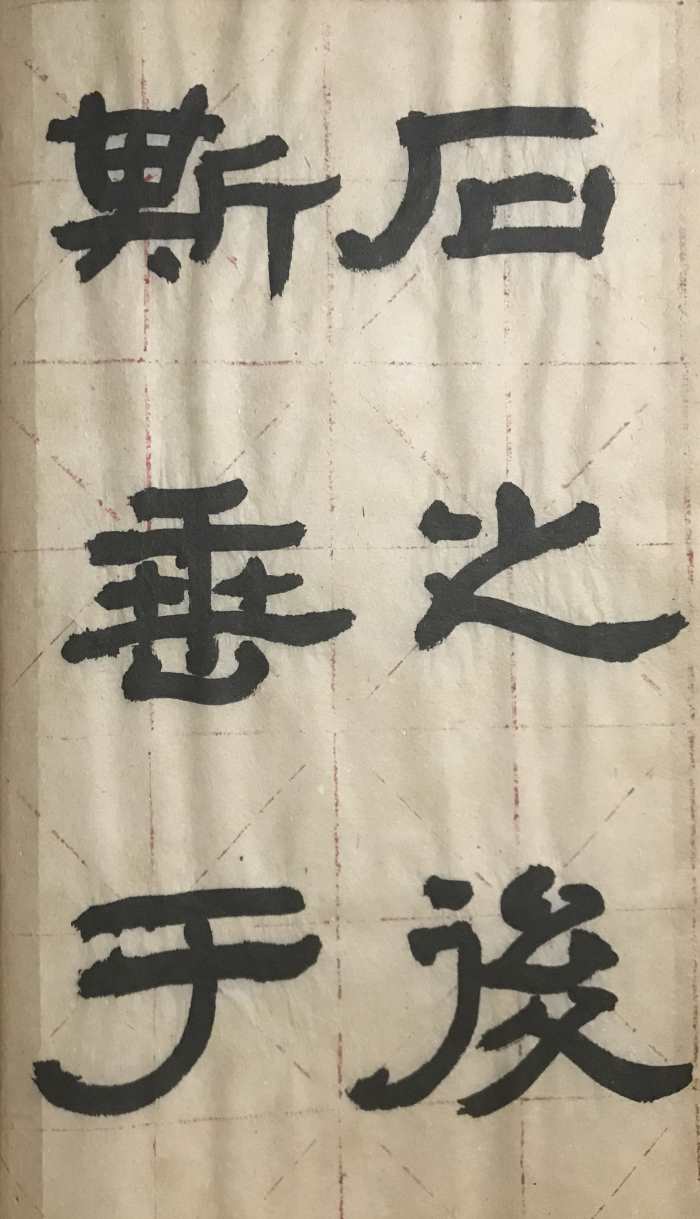 石之後
斯垂于